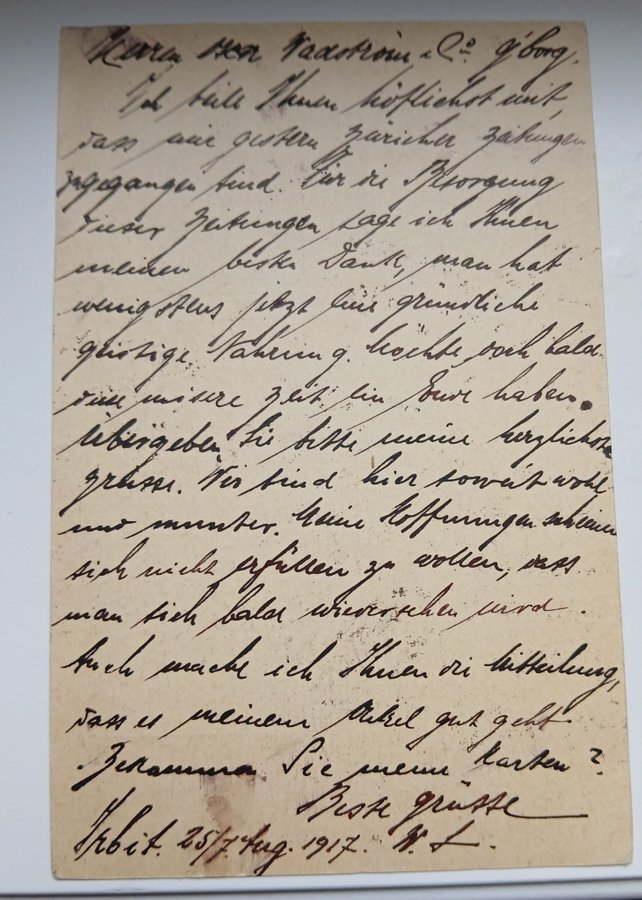 Herren Wadström & Co g'borg.
Ich teile Ihnen höflichst mit,
dass mir gestern Züricher Zeitungen
zugegangen sind. Für die Besorgung
dieser Zeitungen sage ich Ihnen
meinen besten Dank, man hat
wenigstens jetzt eine gründliche
geistige Nahrung. Möchte doch bald
diese misere Zeit ein Ende haben.
Übergeben Sie bitte meine herzlichsten
grüsse. Wir sind hier soweit wohl
und munter. Meine Hoffnungen scheinen
sich nicht erfüllen zu wollen, dass
man sich bald wiedersehen wird.
Auch mache ich Ihnen die Mitteilung,
dass es meinem Onkel gut geht.
Bekommen Sie meine Karten?
Beste grüsse
Irbit. 25/7 Aug. 1917. W. L.